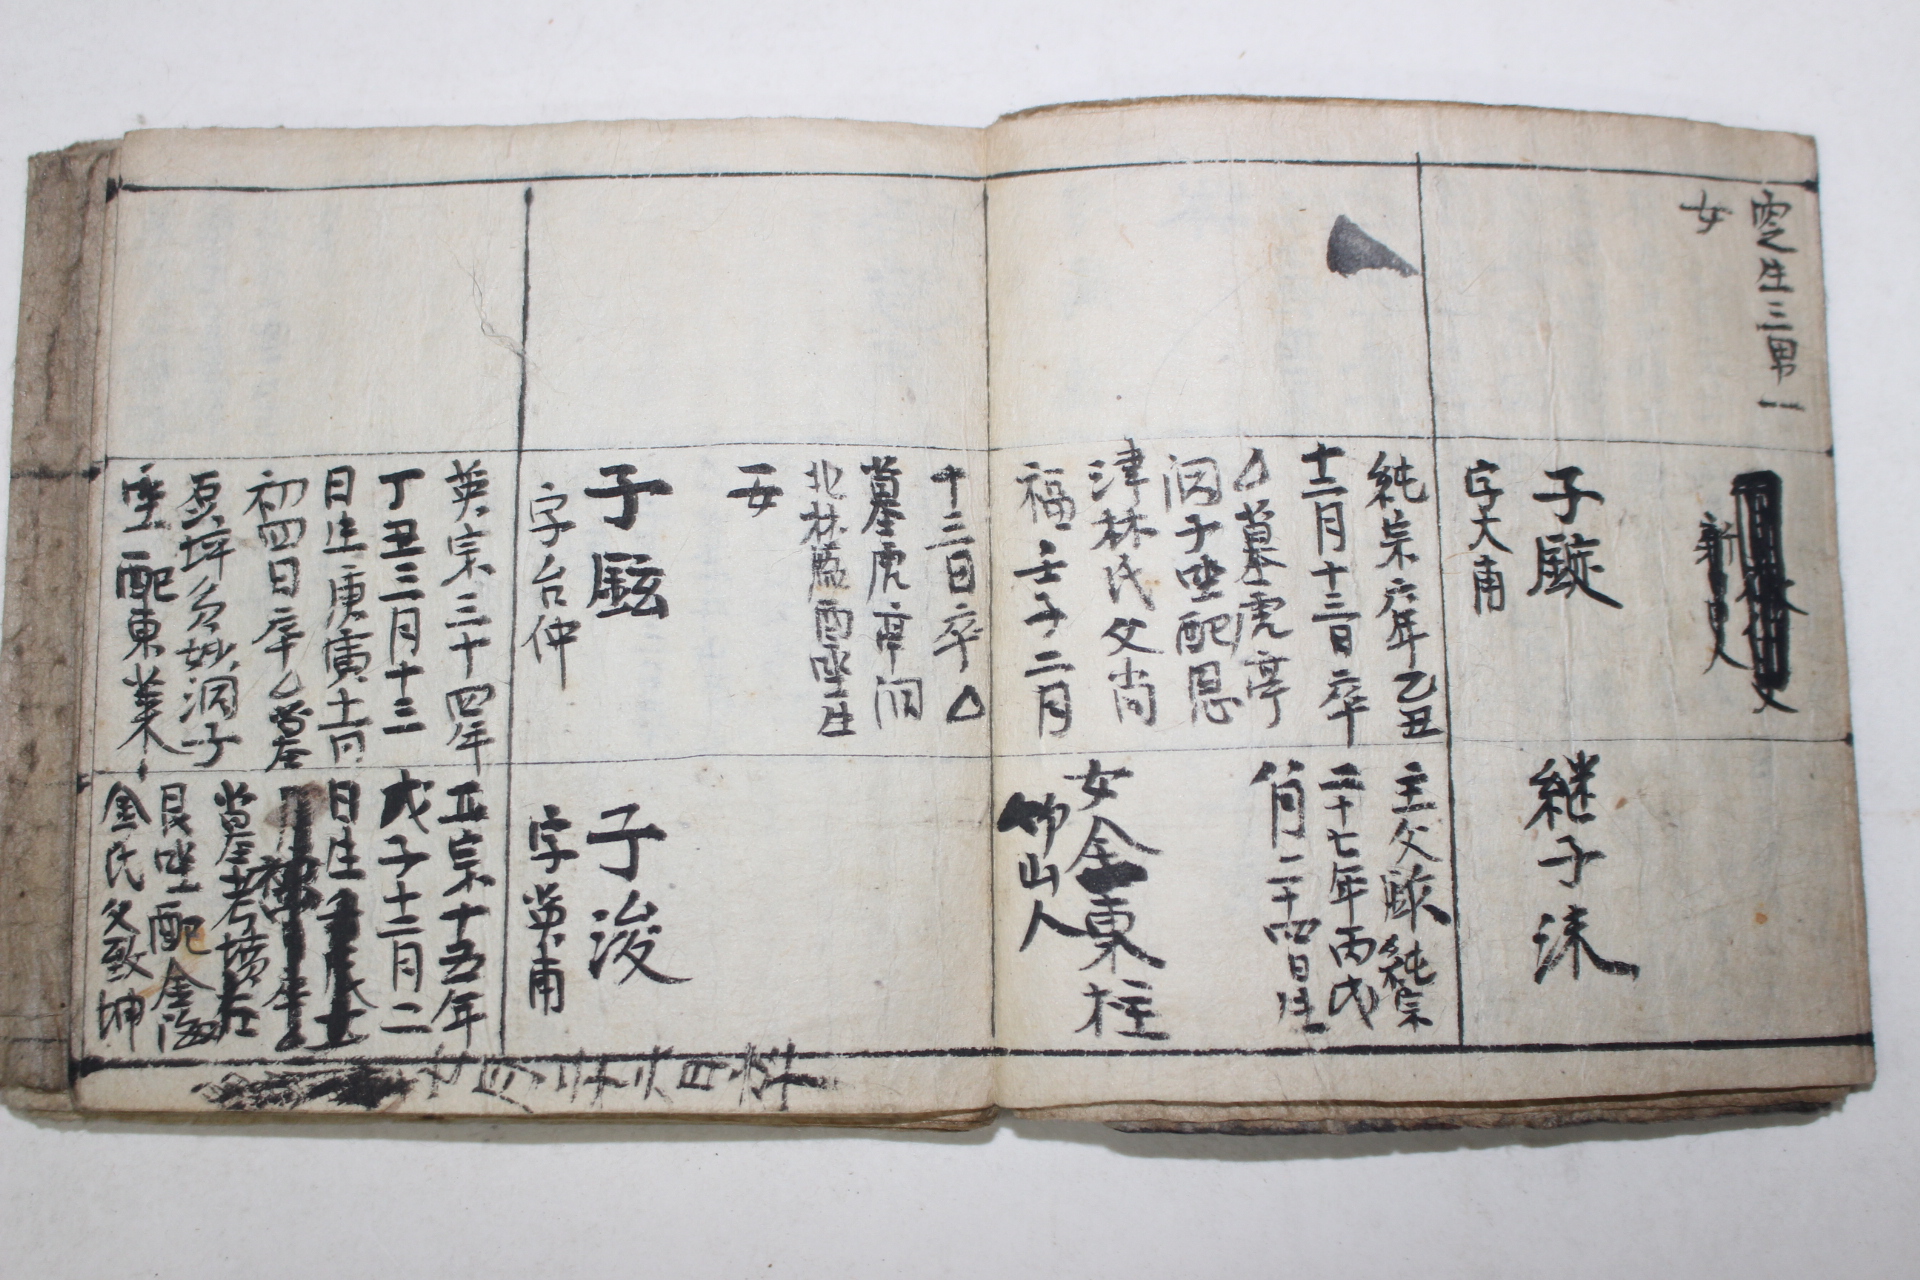 坐生三男一
女
子
字大甫
純宗六年乙丑
十二月十三日卒
墓虎亭
洞子坐配恩
津林氏父尚
福壬子二月
十三日卒
墓虎亭洞
北林 酉坐生
一女
子鉉
字台仲
英宗三十四年
丁丑三月十三
日生庚寅十一月
初四日卒 墓在
坪多妙洞子
坐配東萊
継子沫
主父 純宗
二十七年丙戌
月二十四日生
女金東柱
竹山人
子浚
字英甫
正宗十五年
戊子十二月二
日生
墓 在
艮坐配金海
金氏父致坤